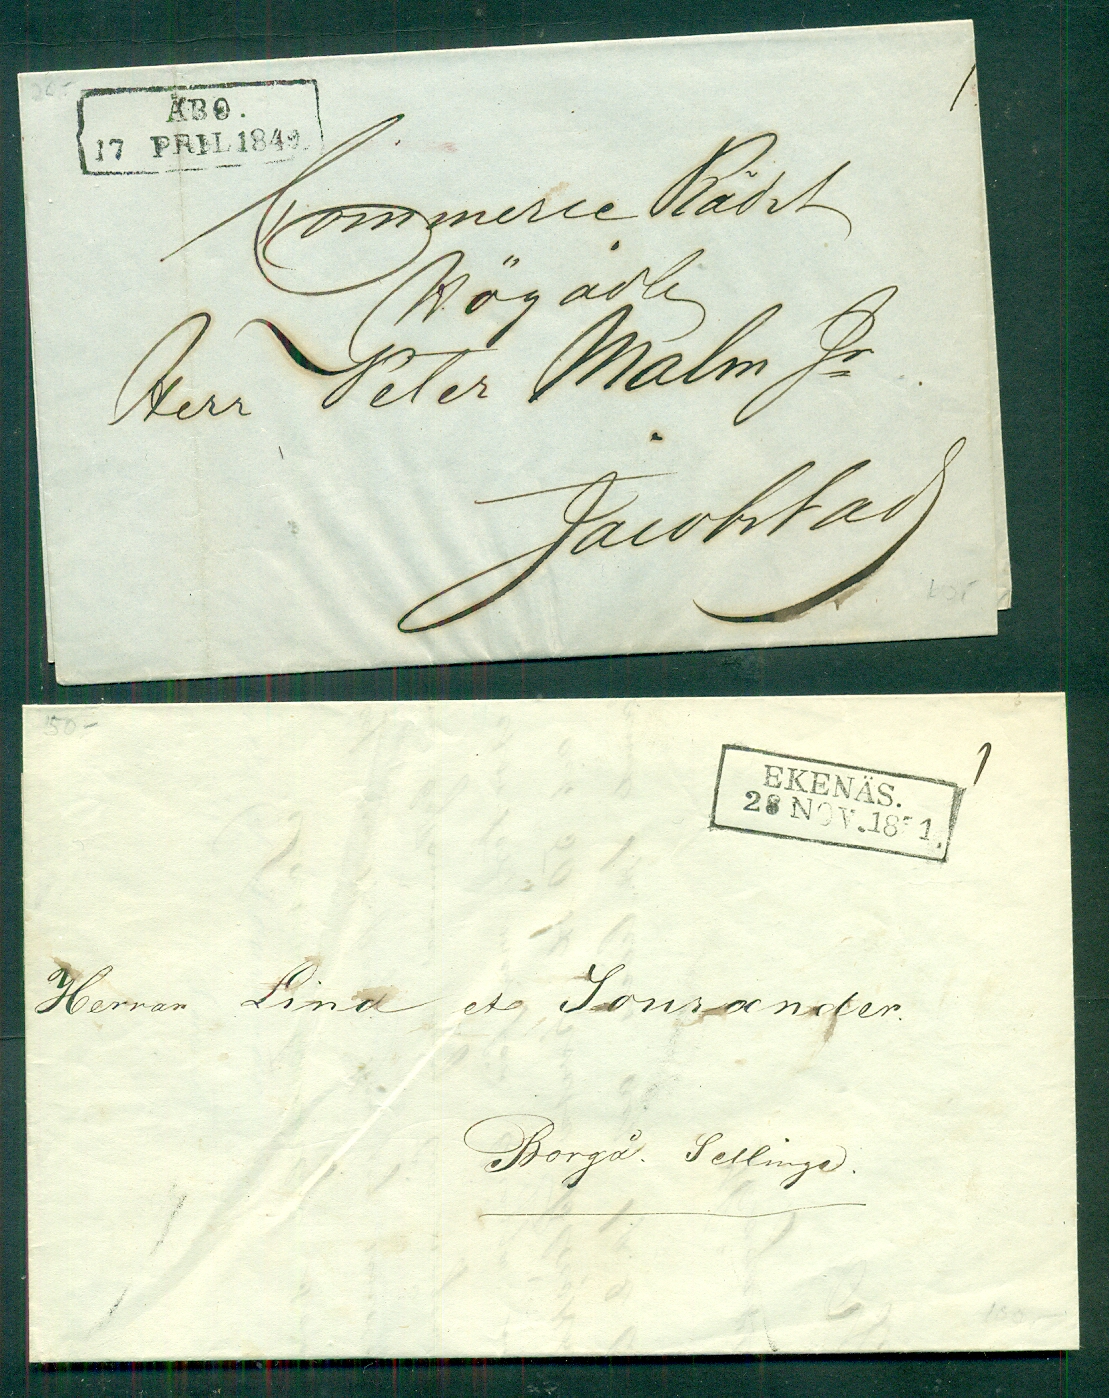 ÅBO.
17 PRIL 1849.
1
Commerce Rådet
Högädle
Herr Peter Malm Jr
Jacobstad
50-
EKENÄS.
28 NOV. 18 1.
1
Herrar Lind et
Borgå. Sellinge.
100-